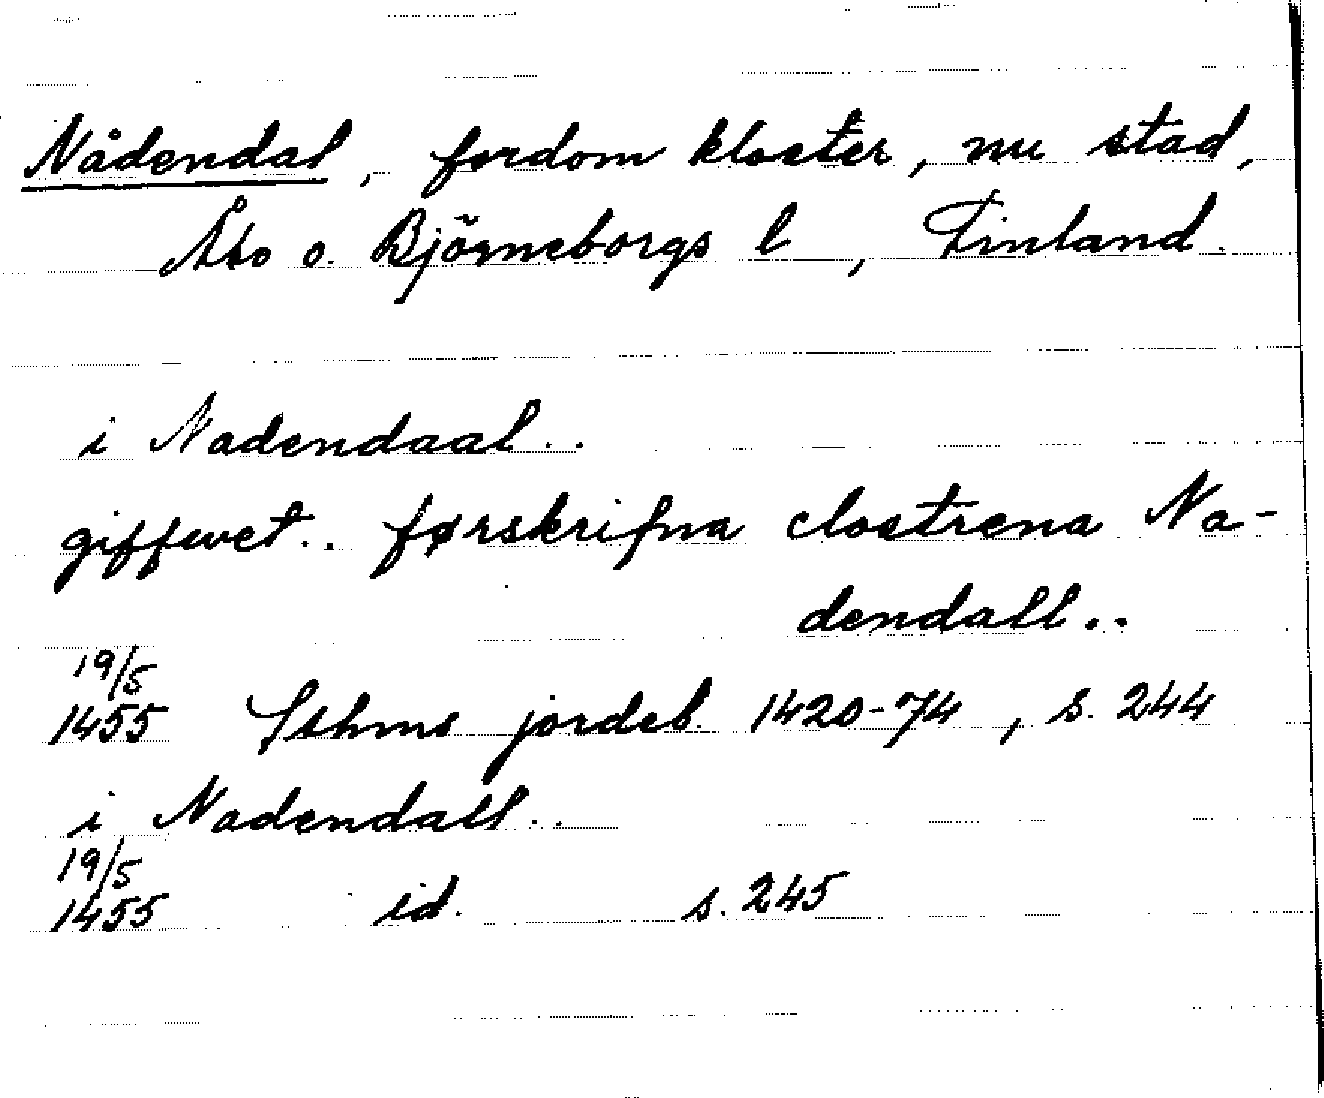 Nådendal, fordom kloster, nu stad,
Åbo o. Björneborgs l, Finland.
i Nadendaal..
giffwet.. førskrifna clostrena Na-
dendall..
19/5
1455 Sthms jordeb. 1420-74, s. 244
i Nadendall..
19/5
1455 id. s. 245